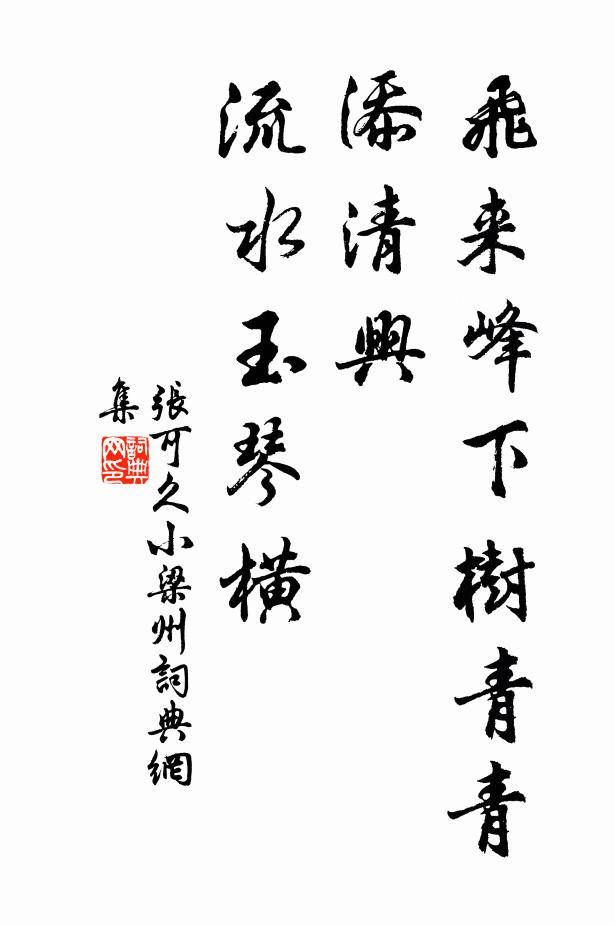 飛来峰下樹青青
添清興
流水玉琴橫
張可久小梁州詞典網
集
詞典
网印